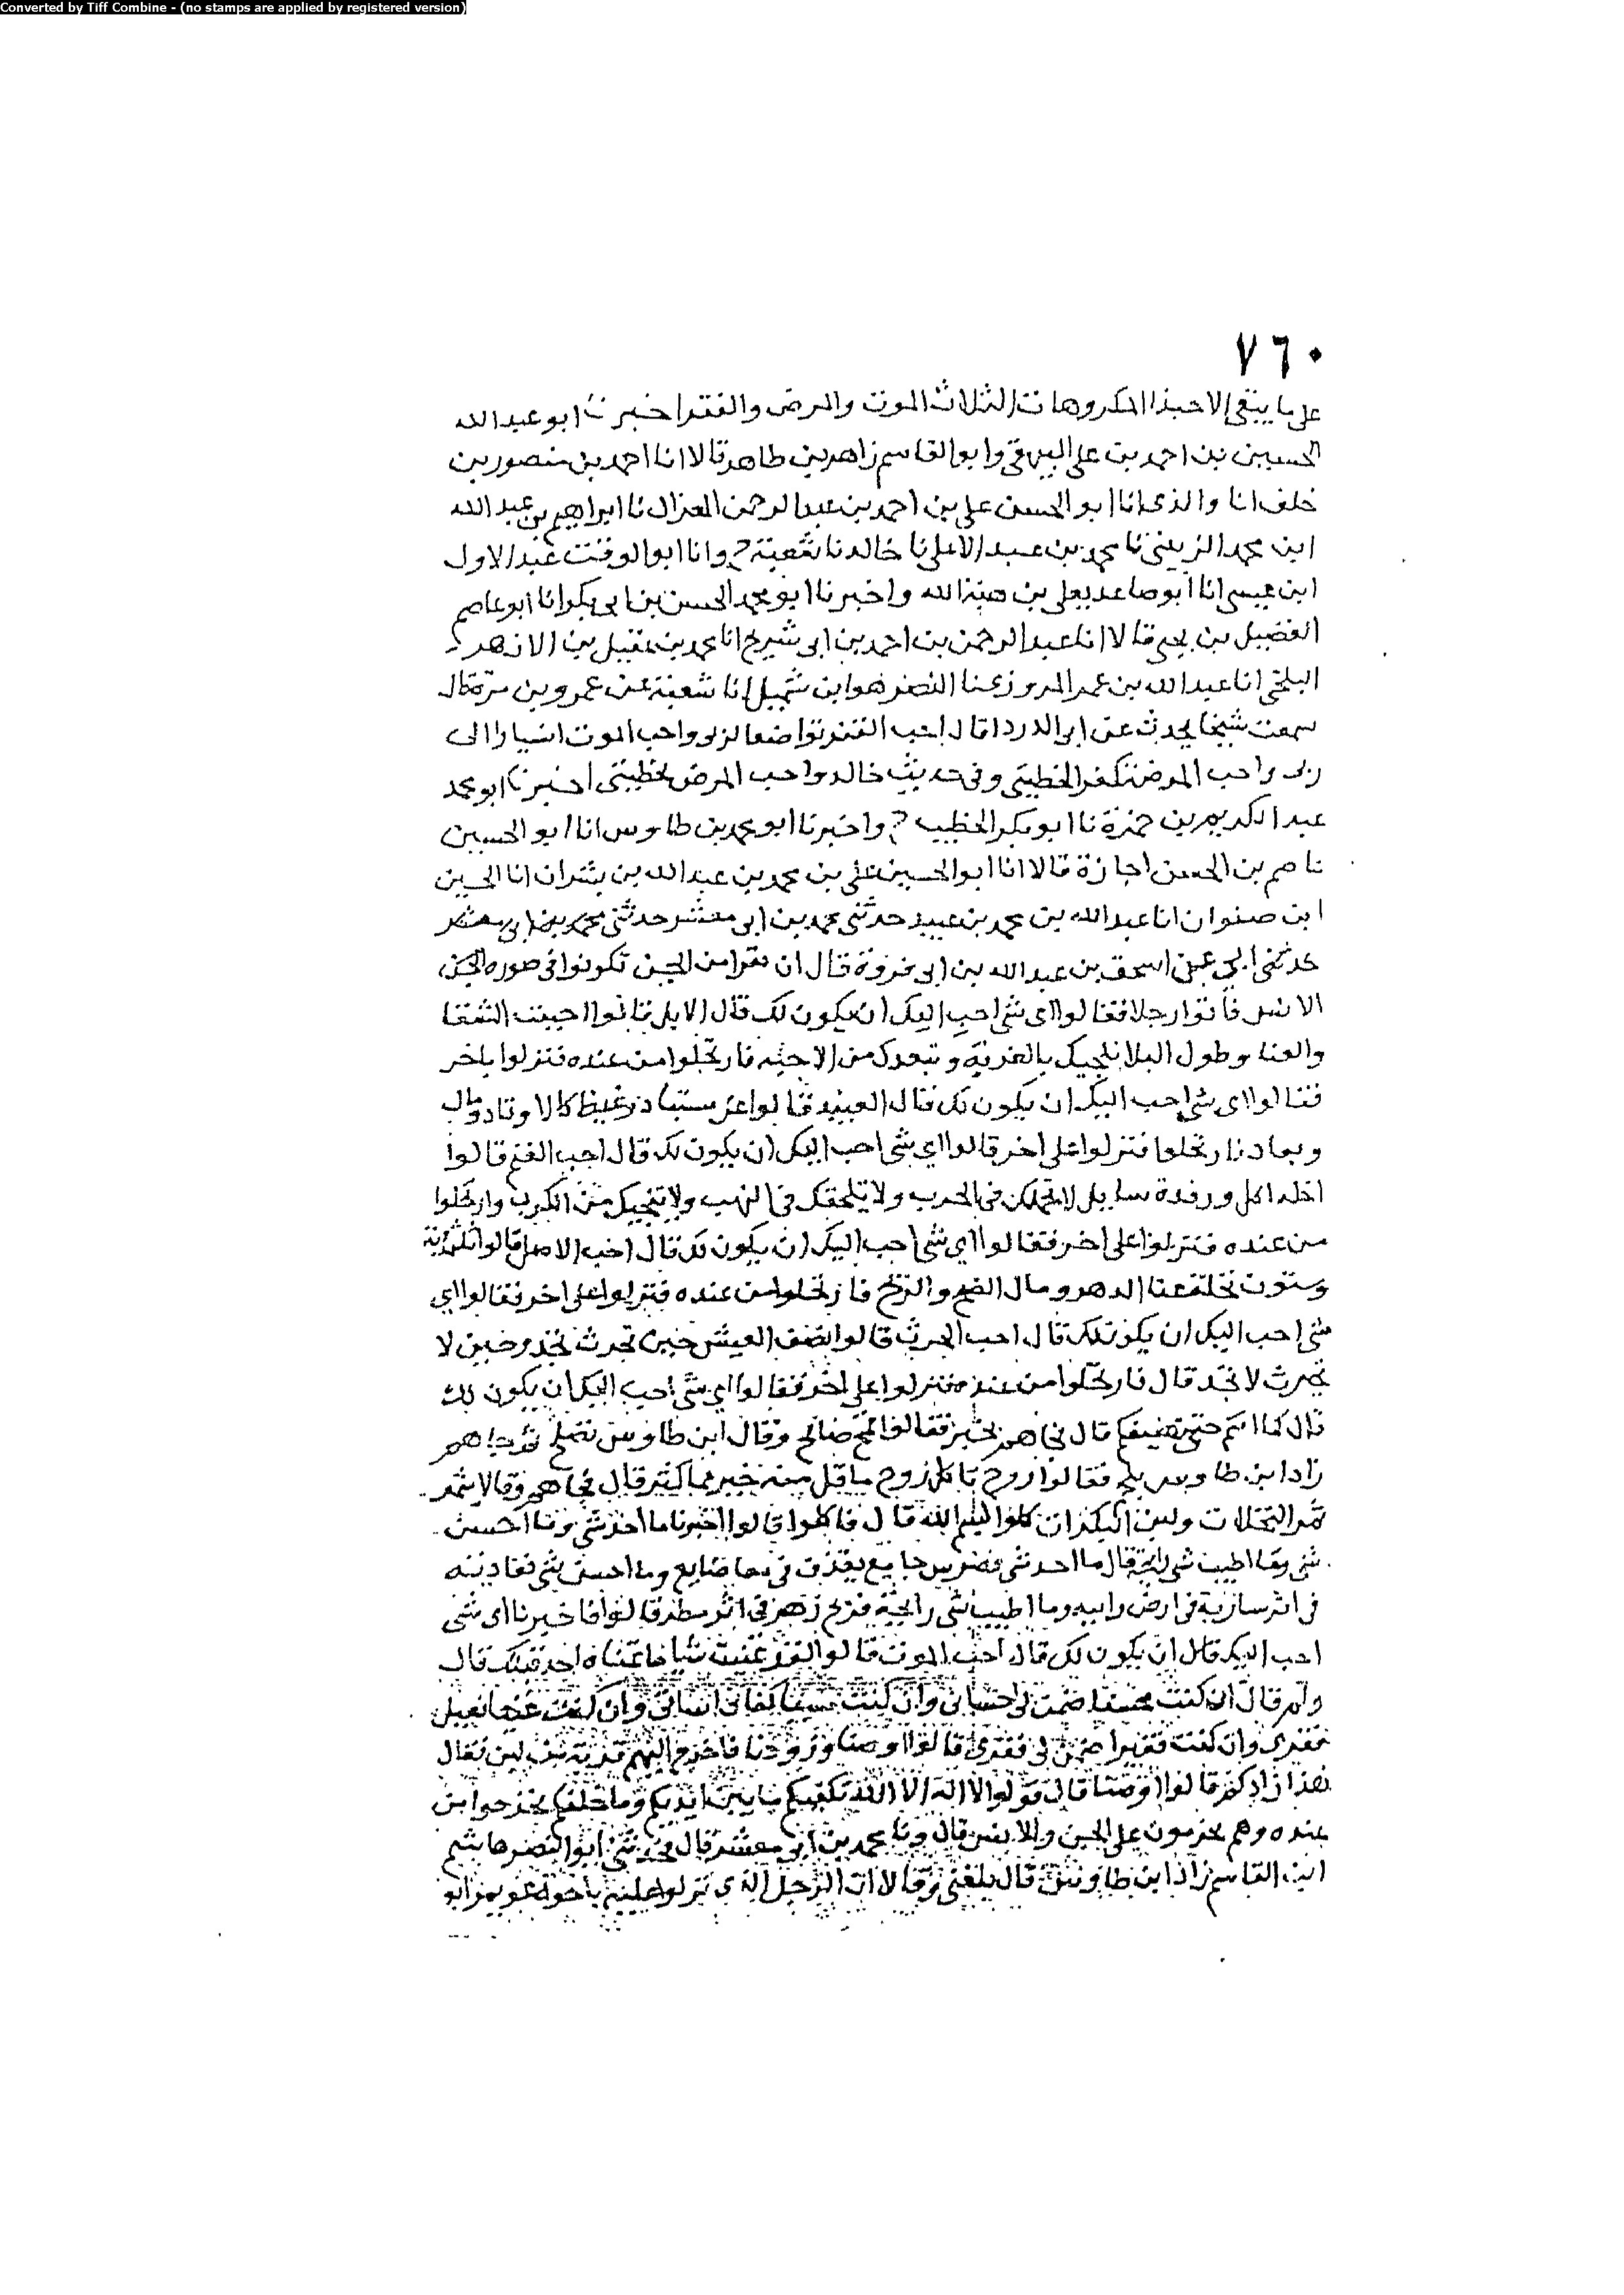 Converted by Tiff Combine - (no stamps are applied by registered version)
٧٦٠
على ما يبقى الا حبذا المكروهات الثلاث الموت والمرض والفقر اخبرنا ابو عبد الله
الحسين بن احمد بن على البيهقى وابو القاسم زاهر بن طاهر قالا انا احمد بن منصور بن
خلف انا والدى انا ابو الحسن على بن احمد بن عبد الرحمن الغزال نا ابراهيم بن عبد الله
ابن محمد الزينبى نا محمد بن عبد الاعلى نا خالد نا شعبة ح وانا ابو الوقت عبد الاول
ابن عيسى انا ابو صاعد يعلى بن هبة الله واخبرنا ابو محمد الحسن بن ابى بكر انا ابو عاصم
الفضيل بن يحيى قالا انا عبد الرحمن بن احمد بن ابى شريح انا محمد بن عقيل بن الازهر
البلخى انا عبد الله بن عمر المروزى نا النضر هو ابن شميل انا شعبة عن عمرو بن مرة قال
سمعت شيخا يحدث عن ابى الدرداء قال احب الفقر تواضعا لربى واحب الموت اشتياقا الى
ربى واحب المرض تكفير الخطيتى وفى حديث خالد واحب المرض بخطيتى اخبرنا ابو محمد
عبد الكريم بن حمزة نا ابو بكر الخطيب ح واخبرنا ابو محمد بن طاوس انا ابو الحسين
عاصم بن الحسن اجازة قالا انا ابو الحسين على بن محمد بن عبد الله بن بشران انا الحسين
ابن صفوان انا عبد الله بن محمد بن عبيد حدثنى محمد بن ابى معشر حدثنى محمد بن ابى معشر
حدثنى ابى عن اسحق بن عبد الله بن ابى فروة قال ان نفرا من الجن تكونوا فى صورة
الانس فاتوا رجلا فقالوا اى شى احب اليك ان يكون لك قال الابل قالوا احببت الشقا
والعنا وطول البلا تلحيك بالغربة وتبعدك من الاحبة فارتحلوا من عنده فنزلوا باخر
فقالوا اى شى احب اليك ان يكون لك قال العبيد قالوا عز مستفاد وغيظ كالاوتاد ومال
وبعاد فارتحلوا فنزلوا على اخر قالوا اى شى احب اليك ان يكون لك قال احب الغنم قالوا
اكلة اكل ورفدة سايل لا تحملك فى الحرب ولا تلحقك فى النهب ولا تنجيك من الكرب وارتحلوا
من عنده فنزلوا على اخر فقالوا اى شى احب اليك ان يكون لك قال احب الاصل قالوا ثلثمائة
وستون نخلة غنا الدهر ومال الضح والريح فارتحلوا من عنده فنزلوا على اخر فقالوا اى
شى احب اليك ان يكون لك قال احب الحرث قالوا نصف العيش حين تحرث تجد وحين لا
تحرث لا تجد قال فارتحلوا من عنده فنزلوا على اخر فقالوا اى شى احب اليك ان يكون لك
قال كما انتم حتى نضيفكم قال فجاهم بخبز فقالوا قمح صالح وقال ابن طاوس
زاد ابن طاوس فقالوا روح ياكل روح ما قل منه خير مما كثر قال فجاهم وقالا بتمر
تمر النخلات ولبن البكرات كلوا بسم الله قال فاكلوا قالوا اخبرنا ما احد شى وما احسن
شى وما اطيب شى رايحة قال ما احد شى فضرس جايع يقذف فى معا ضايع وما احسن شى فغادية
فى اثر سارية فى ارض رابية وما اطيب شى رايحة فريح زهر فى اثر مطر قالوا فاخبرنا اى شى
احب اليك قال ان يكون لك قال احب الموت قالوا لقد تمنيت شيا ما تمناه احد قبلك قال
ولم قال ان كنت محسنا ضمن لى احسانى وان كنت مسيئا كفانى اساتى وان كنت غنيا فقبل
فقرى وان كنت فقيرا ضمن لى فقرى قالوا اوصنا وزودنا فاخرج اليهم قربة من لبن فقال
هذا زادكم قالوا اوصنا قال قولوا لا اله الا الله تكفيكم ما بين ايديكم وما خلفكم فخرجوا من
عنده وهم يحزمون على الجن والانس قال ونا محمد بن ابى معشر قال فحدثنى ابو النضر هاشم
ابن القاسم زاد ابن طاوس قال بلغنى وقالا ان الرجل الذى نزلوا عليه باخره عويمر ابو